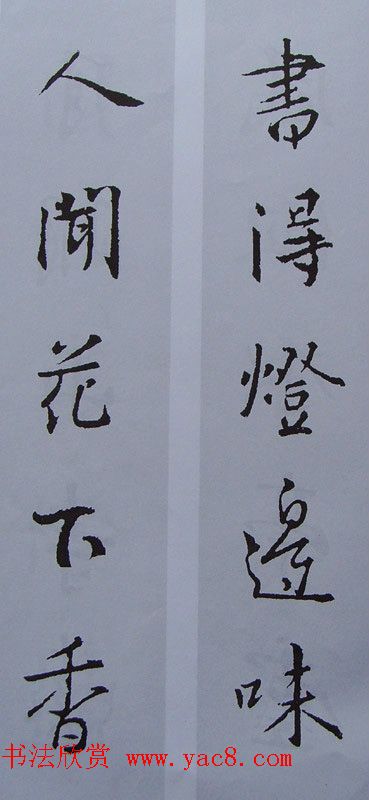 書得燈邊味
人聞花下香
书法欣赏 www.yac8.com